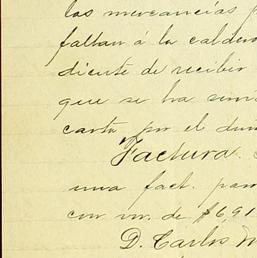 las mercancías
faltan á la
diente de recibir
que se ha
carta por el
Factura.
una fact. para
con m. de $691
D. Carlos